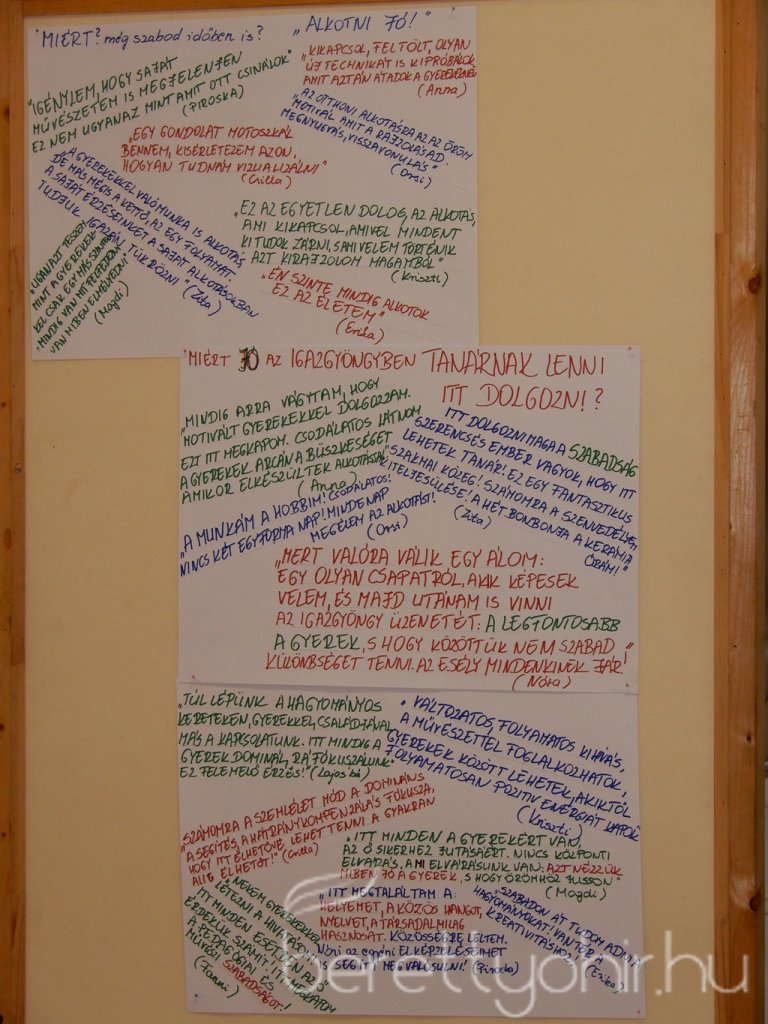 "MIÉRT? még szabad időben is?
"ALKOTNI JÓ!"
"IGÉNYLEM, HOGY SAJÁT
MŰVÉSZETEM IS MEGJELENJEN
EZ NEM UGYANAZ MINT AMIT OTT CSINÁLOK"
(PIROSKA)
"KIKAPCSOL, FELTÖLT, OLYAN
ÚJ TECHNIKÁT IS KIPRÓBÁLOK,
AMIT AZTÁN ÁTADOK A GYEREKEKNEK"
(Anna)
"AZ OTTHONI ALKOTÁSRA AZ AZ ÖRÖM
MOTIVÁL AMIT A RAJZOLÁS AD.
MEGNYUGVÁS, VISSZAVONULÁS"
(Orsi)
"EGY GONDOLAT MOTOSZKÁL
BENNEM, KISÉRLETEZEM AZON,
HOGYAN TUDNÁM VIZUALIZÁLNI"
(Csilla)
"A GYEREKEKKEL VALÓ MUNKA IS ALKOTÁS,
DE MÁS MÉGIS A KETTŐ, AZ EGY FOLYAMAT.
A SAJÁT ÉRZÉSEINKET A SAJÁT ALKOTÁSOKBAN
TUDJUK IGAZÁN TÜKRÖZNI" (Zita)
"EZ AZ EGYETLEN DOLOG, AZ ALKOTÁS,
AMI KIKAPCSOL, AMIVEL MINDENT
KI TUDOK ZÁRNI, S AMI VELEM TÖRTÉNIK
AZT KIRAJZOLOM MAGAMBÓL"
(Kriszti)
"UGANAZT TESZEM
MINT A GYEREKEK-
KEL CSAK EGY MÁS SZINTEN.
MINDIG VAN MIT FELFEDEZNI
VAN MIBEN ELMÉLYEDNI"
(Magdi)
"ÉN SZINTE MINDIG ALKOTOK
EZ AZ ÉLETEM"
(Erika)
"MIÉRT JÓ AZ IGAZGYÖNGYBEN TANÁRNAK LENNI
ITT DOLGOZNI?
"MINDIG ARRA VÁGYTAM, HOGY
MOTIVÁLT GYEREKEKKEL DOLGOZZAM.
EZT ITT MEGKAPOM. CSODÁLATOS LÁTNOM
A GYEREKEK ARCÁN A BÜSZKESÉGET
AMIKOR ELKÉSZÜLTEK ALKOTÁSAIK"
(Anna)
ITT DOLGOZNI MAGA A SZABADSÁG
SZERENCSÉS EMBER VAGYOK, HOGY ITT
LEHETEK TANÁR! EZ EGY FANTASZTIKUS
SZAKMAI KÖZEG! SZÁMOMRA A SZENVEDÉLYEM
KITELJESÜLÉSE! A HÉT BONBONJA A KERÁMIA
ÓRÁM!"
(Zita)
"A MUNKÁM A HOBBIM! CSODÁLATOS!
NINCS KÉT EGYFORMA NAP! MINDENNAP
MEGÉLEM AZ ALKOTÁST!"
(Orsi)
"MERT VALÓRA VÁLIK EGY ÁLOM:
EGY OLYAN CSAPATRÓL, AKIK KÉPESEK
VELEM, ÉS MAJD UTÁNAM IS VINNI
AZ IGAZGYÖNGY ÜZENETÉT: A LEGFONTOSABB
A GYEREK, S HOGY KÖZÖTTÜK NEM SZABAD
KÜLÖNBSÉGET TENNI. AZ ESÉLY MINDENKINEK JÁR!"
(Nóra)
"TÚL LÉPÜNK A HAGYOMÁNYOS
KERETEKEN, GYEREKKEL, CSALÁDJÁVAL
MÁS A KAPCSOLATUNK. ITT MINDIG A
GYEREK DOMINÁL, RÁ FÓKUSZÁLUNK.
EZ FELEMELŐ ÉRZÉS!" (Lajos bá)
"VÁLTOZATOS, FOLYAMATOS KIHÍVÁS,
A MŰVÉSZETTEL FOGLALKOZHATOK,
GYEREKEK KÖZÖTT LEHETEK, AKIKTŐL
FOLYAMATOSAN POZITIV ENERGIÁT KAPOK"
(Kriszti)
"SZÁMOMRA A SZEMLÉLET MÓD A DOMINÁNS
A SEGÍTÉS, A HÁTRÁNYKOMPENZÁLÁS FÓKUSZA,
HOGY ITT ÉLHETŐVÉ LEHET TENNI A GYAKRAN
ALIG ÉLHETŐT!" (Csilla)
"ITT MINDEN A GYEREKÉRT VAN,
AZ Ő SIKERHEZ JUTÁSÁÉRT. NINCS KÖZPONTI
ELVÁRÁS, A MI ELVÁRÁSUNK VAN: AZT NÉZZÜK
MIBEN JÓ A GYEREK, S HOGY ÖRÖMHÖZ JUSSON"
(Magdi)
"NEKEM GYEREKEKKEL
LÉTEZNI A HIVATÁSOM
ITT MINDEN ESETBEN AZ Ő
ÉRDEKÜK SZÁMIT. ITT MEGKAPOM
A PEDAGÓGIAI ÉS
MŰVÉSZI SZABADSÁGOT!"
(Fanni)
"ITT MEGTALÁLTAM A:
HELYEMET, A KÖZÖS HANGOT,
NYELVET, A TÁRSADALMILAG
HASZNOSAT. KÖZÖSSÉGRE LELTEM.
AZ EGYÉNI ELKÉPZELÉSEIMET
IS SEGÍTI MEGVALÓSULNI!" (Piroska)
"SZABADON ÁT TUDOM ADNI A
HAGYOMÁNYOKAT! VAN TÉR A
KREATIVITÁSHOZ"
(Erika)
berettyohir.hu